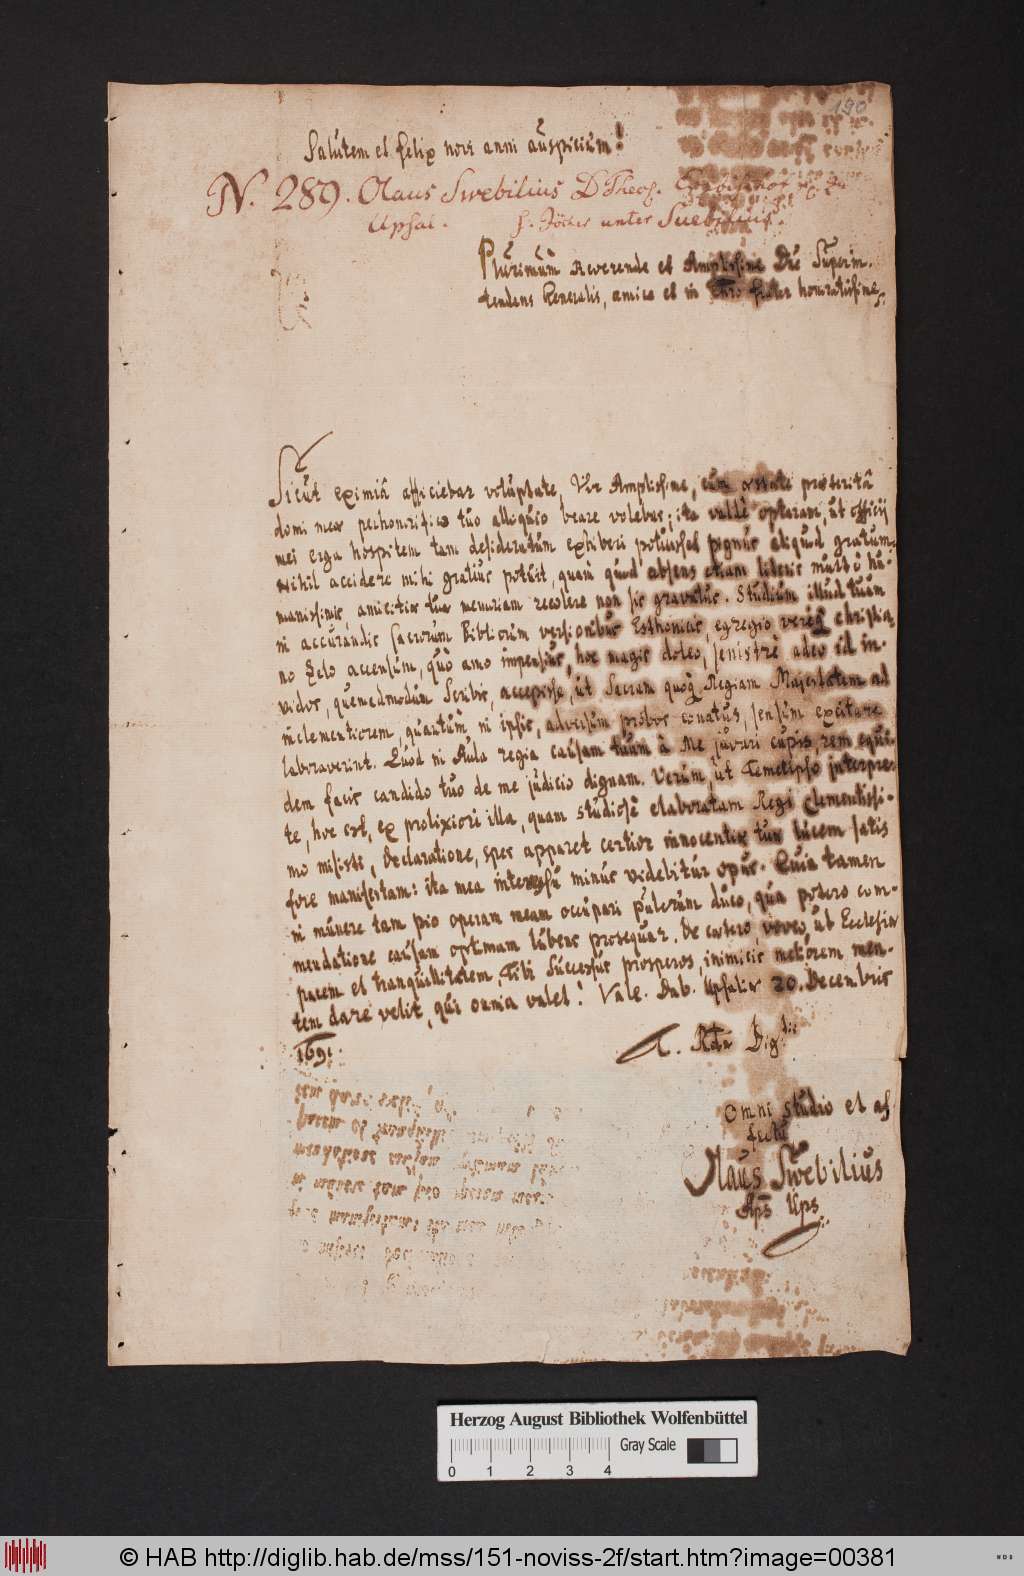 190
Salutem et felix novi anni auspicium!
N. 289. Olaus Swebilius D Theol. Erzbischof zu
Upsal. s. Jöcher unter Suebilius.
Plurimùm Reverende et Amplissime Dne Superin-
tendens Generalis, amice et in Chro frater honoratissime,
Sicut eximiâ afficiebar voluptate, Vir Amplissime, cùm æstate præteritâ
domi meæ perhonorifico tuo alloquio beare volebas; ita valdè optaram, ut officij
mei erga hospitem tam desideratum exhiberi potuisset pignus aliquod gratum.
Nihil accidere mihi gratius potuit, quàm quod absens etiam literis multò hu-
manissimis, amicitiæ tuæ memoriam recolere non sis gravatus. Studium illud tuum
in accurandis sacrorum Bibliorum versionibus Esthonicis, egregio veréq Christia-
no Zelo accensum, quò amo impensius, hoc magis doleo, sinistrè adeo id in-
vidos, quemadmodum scribis, accepisse, ut Sacram quoq Regiam Majestatem ad
inclementiorem, quantùm in ipsis, adversùm probos conatus, sensum excitare
laboraverint. Quod in Aula regia causam tuam à me juvari cupis, rem equi-
dem facis candido tuo de me judicio dignam. Verùm, ut Temetipso interpre-
te, hoc est, ex prolixiori illa, quam studiosè elaboratam Regi Clementissi-
mo misisti, declaratione, spes apparet certior innocentiæ tuæ lucem satis
fore manifestam: ita mea intercessu minus videbitur opus. Quia tamen
in munere tam pio operam meam occupari pulcrum duco, qua potero com-
mendatione causam optimam lubens prosequar. De cætero, voveo, ut Ecclesiæ
pacem et tranquillitatem, Tibi Successus prosperos, inimicis meliorem men-
tem dare velit, qui omnia valet! Vale. Dab. Upsaliæ 20. Decembris
1691.
T. Rdæ Dig.
Omni studio et af
fectu
Olaus Swebilius
Aps Ups
Herzog August Bibliothek Wolfenbüttel
Gray Scale
0 1 2 3 4
© HAB http://diglib.hab.de/mss/151-noviss-2f/start.htm?image=00381